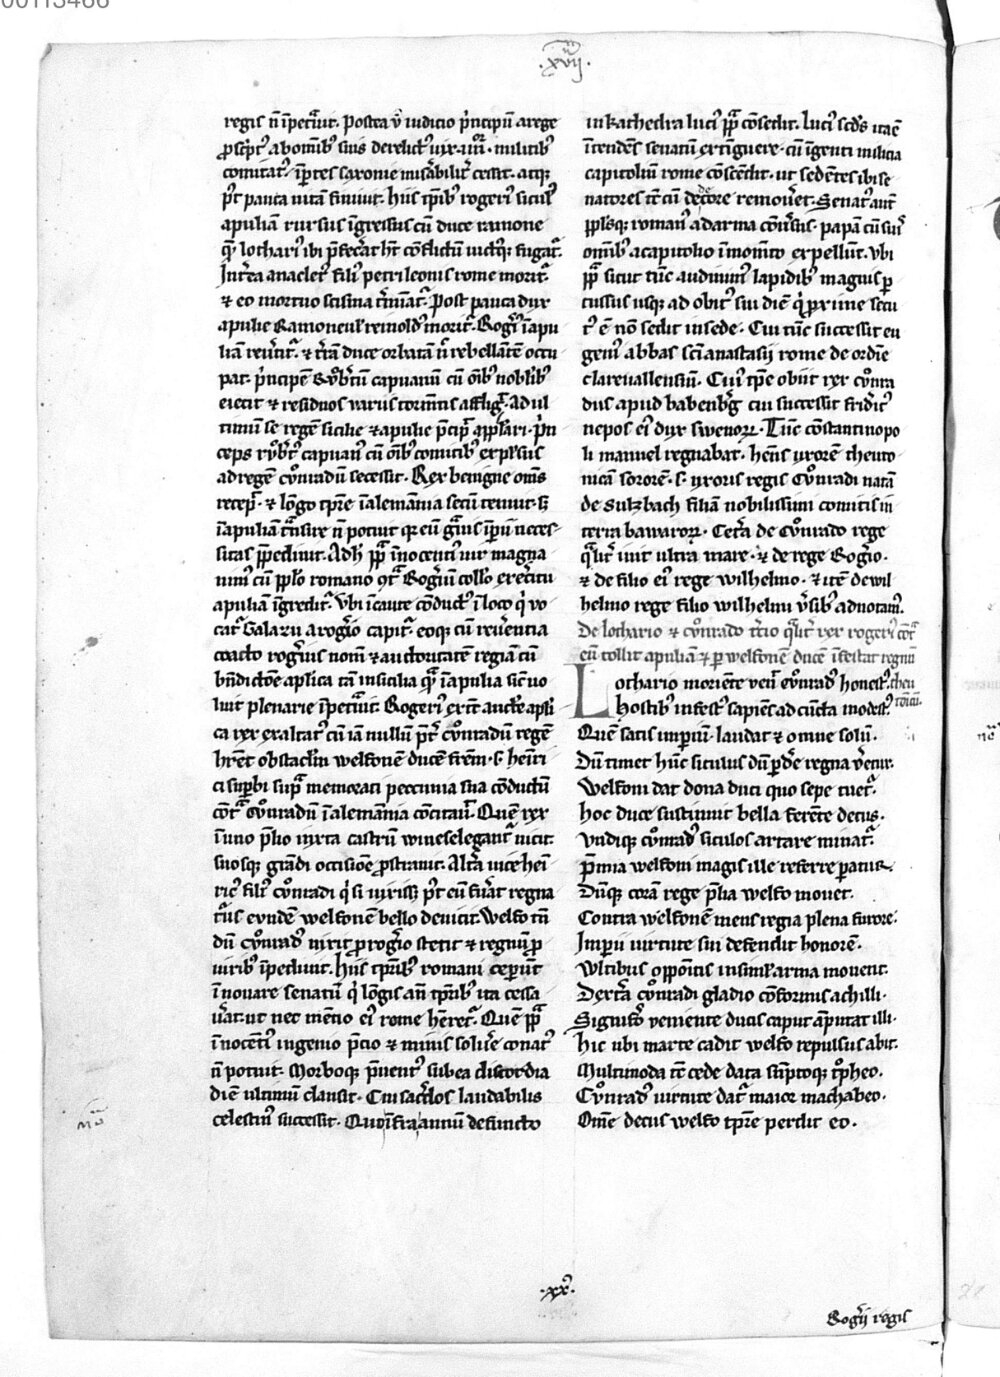 00113466
.xvij.
regis n̄ īpetͣuit. Postea v̄ iudicio pͥncipū a rege
ꝓscpt᷒ ab omībꝫ suis derelict᷒ militibꝫ
comitat᷒ īptes saxonie misͣbilit᷑ cessit. atqꝫ
pꝰt pauca uitā finiuit. Hiis tꝑibꝫ rogeri᷒ sicul᷒
apuliam rursus īgressus cū duce ramone
quē lothari᷒ ibi p̄fecͣat hr̄t cōflictū fugat᷑.
Interea anaclet᷒ fili᷒ petri leonis rome morit᷑
⁊ eo mortuo scisma Post pauca dux
apulie morit᷑. Rog᷑i᷒ īapu
liam ⁊ tr̄ā duce orbatā n̄ rebellātē occu
pat. pͥncipē Rob̄tū capuanū cū oībꝫ nobilibꝫ
eiecit ⁊ residuos variis tormētis affligit. Ad ul
timum se regē sicilie ⁊ apulie pͥncipē appellari. Pͥn
ceps rob̄t᷒ capuan᷒ cū oībꝫ comitibꝫ expulsus
ad regē cōnradū secessit. Rex benigne omēs
recepͭ. ⁊ lōgo tꝑe ī alemānia secum tenuit. sꝫ
ī apuliā trāsire n̄ potuit qꝛ eū gͣuis imꝑii neces
sitas p̄pediuit. Adhuc p̄p̄a īnocenti᷒ uir magna
nim᷒ cū pplo romano 9tͣ Rog᷑ium collo exercitu
apuliā īgredit᷑. Vbi īcaute cōduct᷒ ī loco qi vo
cat᷑ Galazu a rog᷑io capit᷑. eoqꝫ cū reuerentia
coacto rog᷑ius nomē ⁊ auctoritatē regiam cū
bn̄dictōe aplica tā in sicilia qͣ ī apulia sicut uo
luit plenarie īpetͣuit. Rogeri᷒ auct̄e apli
ca rex exaltat᷒ cū iā nullū pret᷑ cōnradū regē
hr̄et obstaclm welfonē ducē frēm. s. henri
ci supbi supͣ memorati peccunia sua cōductū
cōtͣ conradum ī alemānia cōcitauit. Quē rex
ī uno p̄lio iuxta castrū wineselegant᷑ uicit.
suosqꝫ grādi occisiōe ꝓstrauit. Alta uice hen
ric᷒ fili᷒ cōnradi qͥ si vixisset pꝰt eū fuerat regna
tur᷒ eundē welfonē bello deuicit. Welfo tn̄
dū cōnrad᷒ vixit ꝓ rog᷑io stetit ⁊ regnū ꝓ
uiribꝫ īpediuit. Hiis tꝑibꝫ romani ceperūt
īnouare senatū qͥ lōgis an̄ tꝑibꝫ ita cessa
uat. ut nec mētio ei᷒ rome heret᷑. Quē p̄p̄a
īnocēti᷒ ingenio p̄cio ⁊ minis soluere conat᷒
n̄ potuit. Morboqꝫ p̄uent᷒ sub ea discordia
diē ultimū clausit. Cui sacͥdos laudabilis
celestin᷒ successit. Quo īfra annū defuncto
in kathedra luci᷒ p̄p̄a cōsedit. Luci᷒ scds itaē
ītendēs senatū extīguere. cū īgenti milicia
capitoliū rome cōscendit. ut sedētes ibi se
natores tc̄ cū dedecore remoueret. Senat᷒ aut̄
pplusqꝫ roman᷒ ad arma cōuersus. papā cū suis
omībꝫ a capitolio ī momēto expellunt. Vbi
p̄p̄a sicut tūc audiuim᷒ lapidibꝫ magnis ꝑ
cussus usqꝫ ad obit᷒ sui diē qͥ ꝓxime secu
t᷒ ē nō sedit in sede. Cui tūc successit eu
geni᷒ abbas scī anastasii rome de ordīe
clareuallensiū. Cui᷒ tꝑe obiit rex cōnra
dus apud babenb᷑g cui successit frid᷑ic᷒
nepos ei᷒ dux sweuoꝝ. Tūc cōstantinopo
li manuel regnabat. habēs uxorē theuto
nicā sororē. s. uxoris regis Cōnradi natā
de Sulzbach filiā nobilissimi comitis in
terra bawaroꝝ. Cetera de Cōnrado rege
qͣlit᷑ iuit ultra mare. ⁊ de rege Rog᷑io.
⁊ de filio ei᷒ rege wilhelmo. ⁊ itē de wil
helmo rege filio wilhelmi v̄sibꝫ adnotam᷒.
De lothario ⁊ cōnrado t᷑cio qͣlit᷑ rex rogeri᷒ cōtͣ
eū tollit apuliā ⁊ ꝑ welfonē ducē īfestat regnū
theu
tōicū.
Lothario moriēte venit cōnrad᷒ honest᷒.
Hostibꝫ infest᷒ sapiēs ad cūcta modest᷒.
Quē satis imꝑium laudat ⁊ omne solū.
Dū timet hūc siculus dū ꝑdere regna veretur.
Welfoni dat dona duci quo sepe tuet᷑.
Hoc duce sustinuit bella ferēte decus.
Vndiqꝫ cōnrad᷒ siculos artare minat᷑.
P̄mia welfoni magis ille referre parat᷒.
Dūqꝫ corā rege p̄lia welfo mouet.
Contra welfonē mens regia plena furore.
Imperii uirtute sui defendit honorē.
Vltibus oppōitis insimul arma mouent.
Dextera Cōnradi gladio cōformis achilli.
Signifero veniente ducis caput āputat illi.
Hic ubi marte cadit welfo repulsus abit.
Multimoda tc̄ cede data sūptoqꝫ tropheo.
Cōnrad᷒ uirtute dat᷑ maior machabeo.
Omē decus welfo tꝑe perdit eo.
.xx᷒.
Rog᷑ii regis